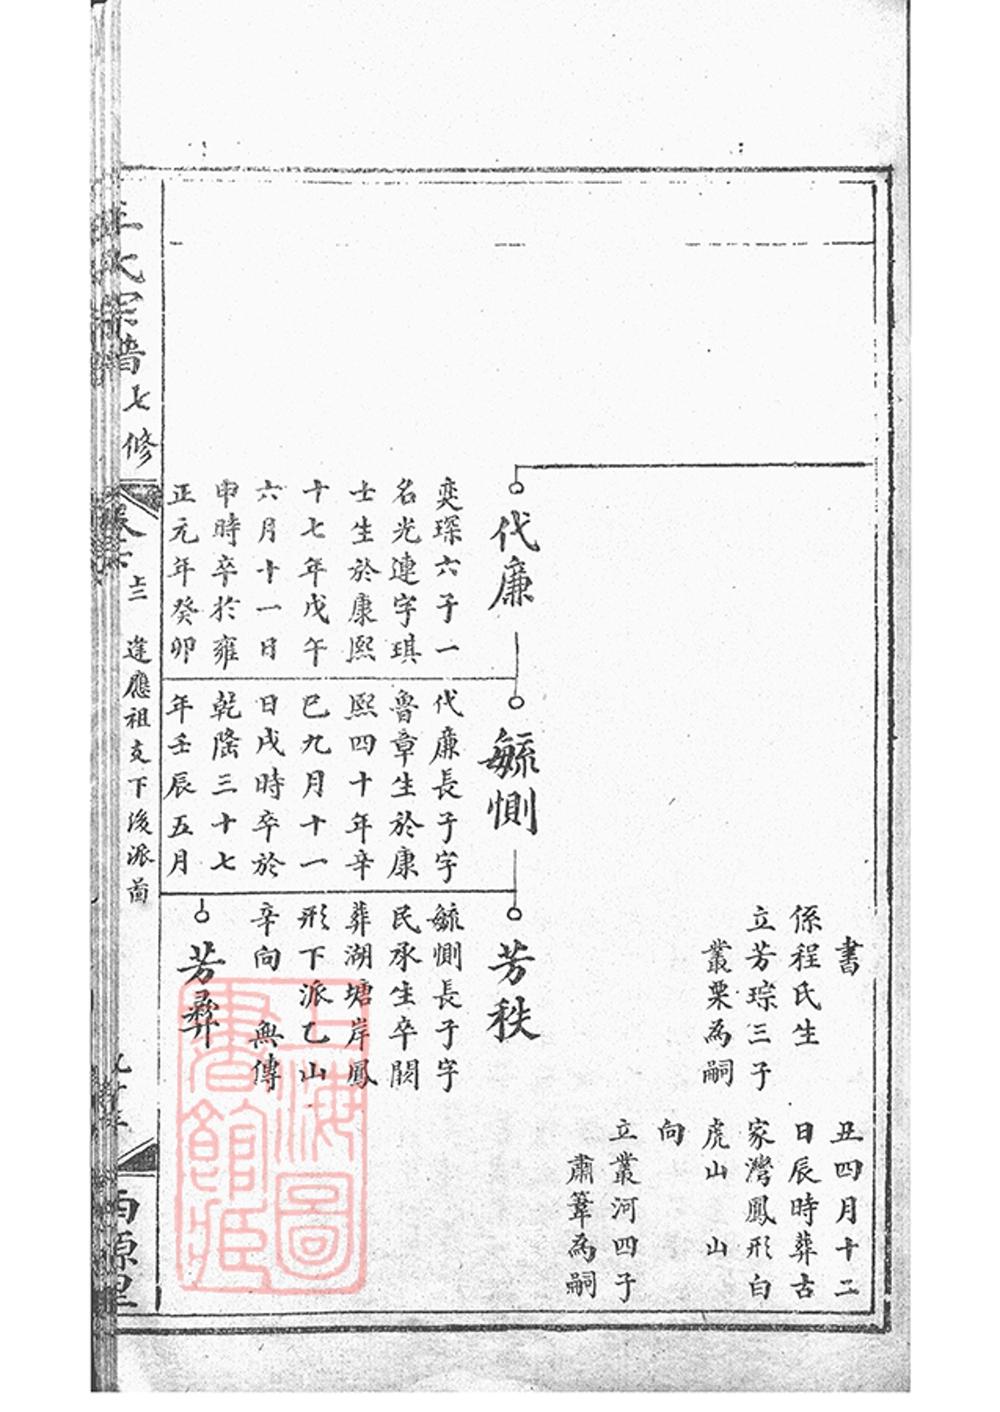 書
係程氏生
立芳琮三子
叢栗為嗣
丑四月十二
日辰時葬古
家灣鳳形白
虎山　山
向
立叢河四子
肅葦為嗣
代廉
奕琛六子一
名光連字琪
士生於康熙
十七年戊午
六月十一日
申時卒於雍
正元年癸卯
毓惻
代廉長子字
魯章生於康
熙四十年辛
巳九月十一
日戌時卒於
乾隆三十七
年壬辰五月
芳秩
毓惻長子字
民承生卒闕
葬湖塘岸鳳
形下派乙山
辛向　無傳
芳彝
王氏宗譜七修
逢應祖支下後派啚
西源里
上海圖書館藏